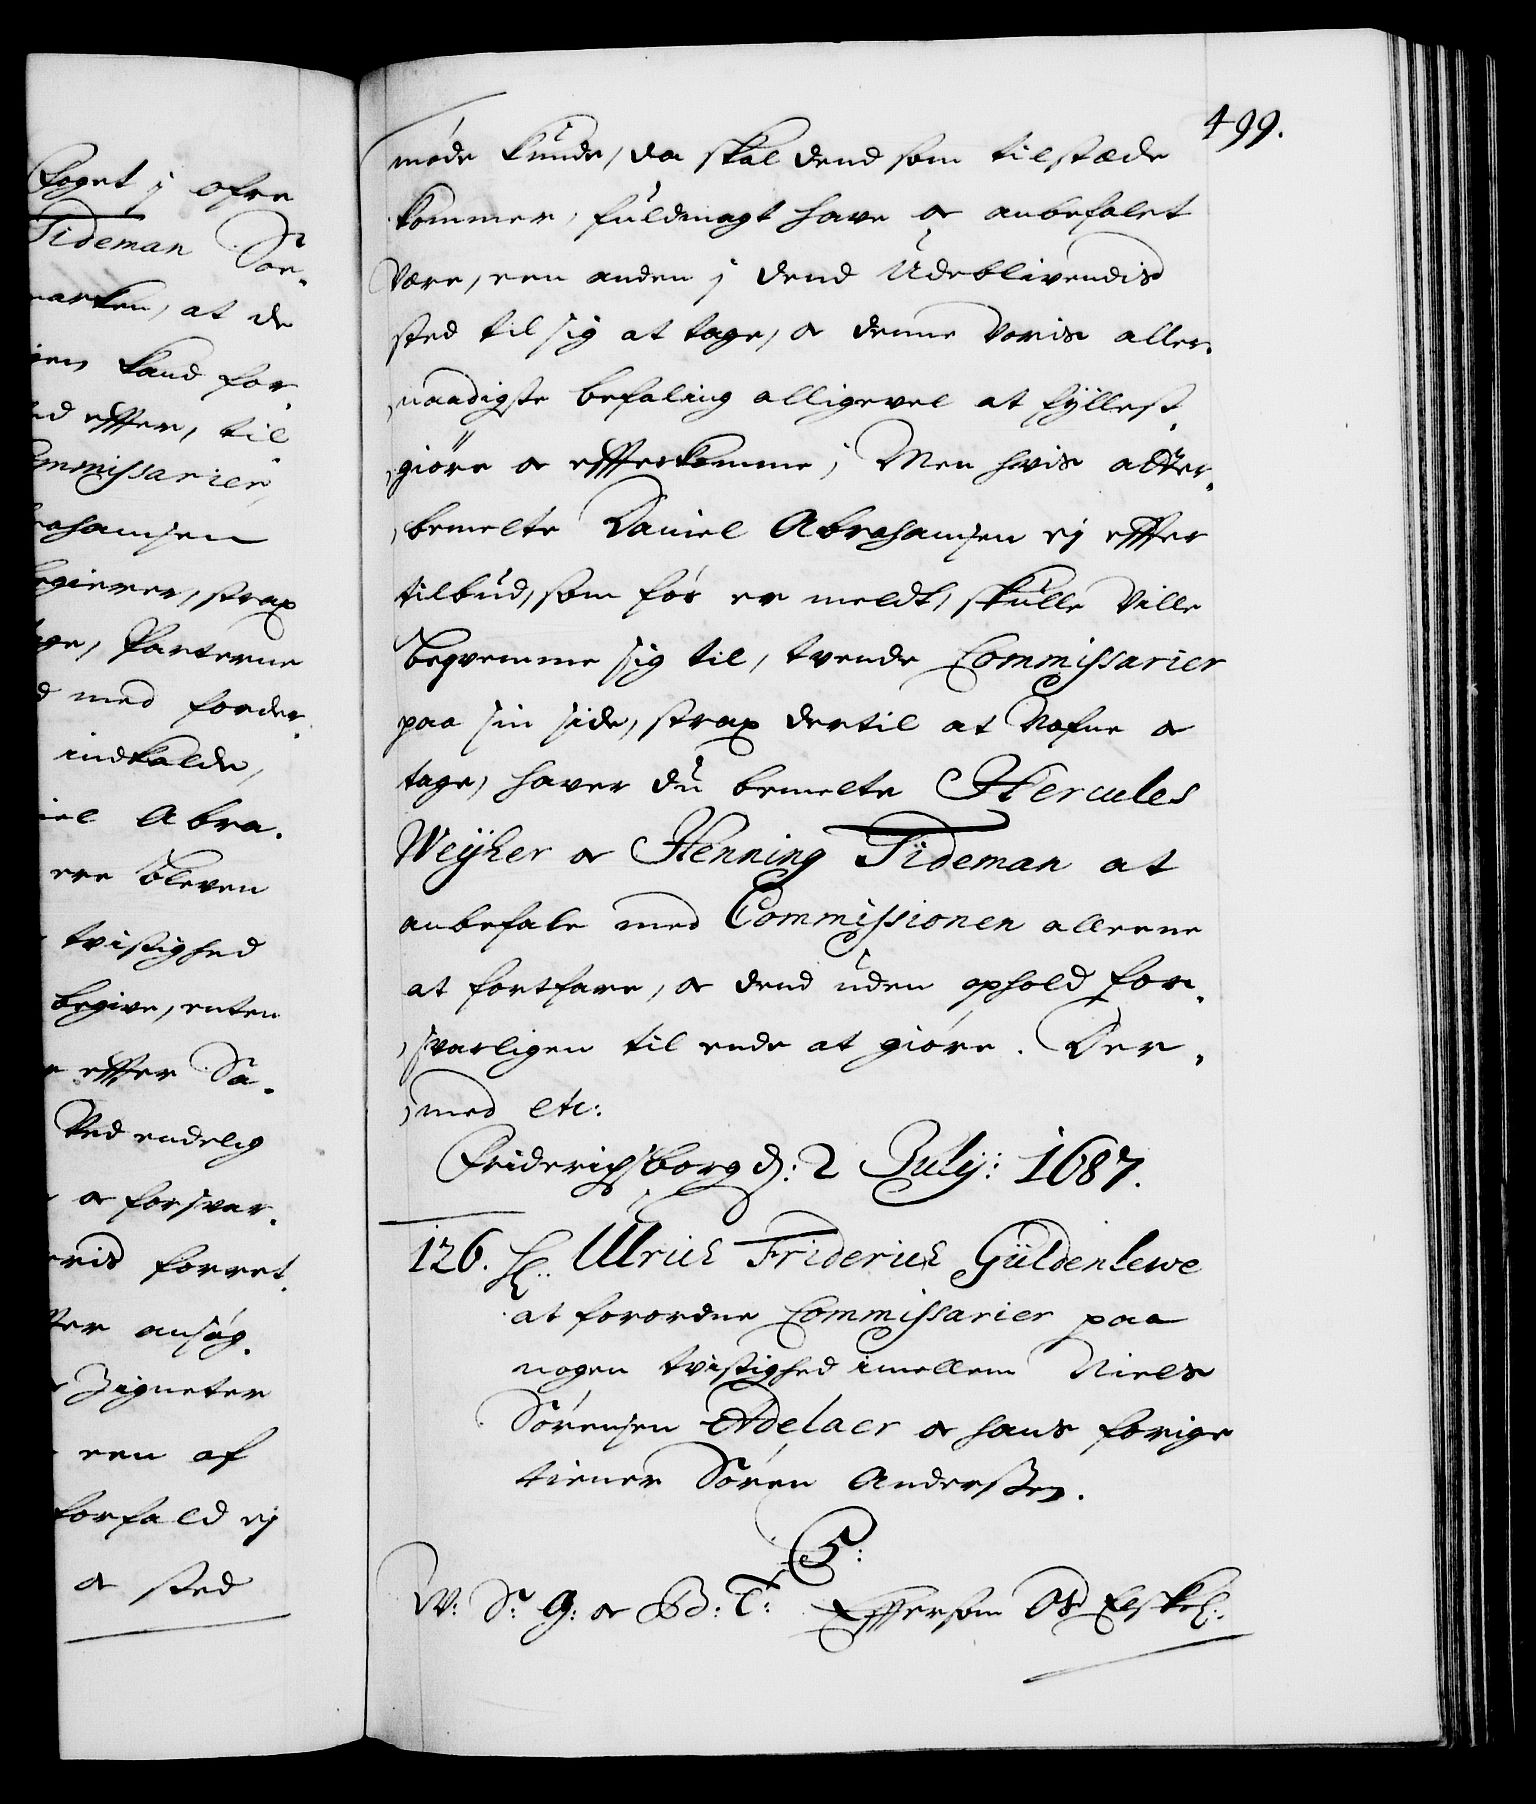 Foget i ofre
Tideman Soe-
marken, at de
kand for-
efter, til
Commissarier,
brahamsen
begierer, strax
Parterne
med forder-
indkalde,
iel Abra-
ere bleven
tvistighed
begive, enten
efter Sa-
Ved endelig
og forsvar-
forret-
ansøg-
Zigneter
een af
forfald ej
og sted
499.
møde kunde, da skal dend som tilstæde
kommer, fuldmagt have og anbefalet
være, een anden i dend Udeblivendis
sted til sig at tage, og denne voris aller-
naadigste befaling alligevel at fyllest-
giöre og efterkomme; Men hvis atter-
bemelte Daniel Abrahamsen ej efter
tilbud, som før er meldt, skulle ville
beqvemme sig til, tvende Commissarier
paa sin side, strax dertil at Nafne og
tage, haver du bemelte Hercules
Weÿher og Henning Tideman at
anbefale med Commissionen alleene
at fortfare, og dend uden ophold for-
svarligen til ende at giöre. Der-
med etc:
Friderichsborg d: 2 Julij: 1687.
126. H: Ulrich Friderich Güldenlewe
at forordne Commissarier paa
nogen tvistighed imellem Niels
Sörensen Adelaer og hans forige
tiener Sören Anderssen.
C5:
W: S: G: og B: T: Eftersom Os Elskel: